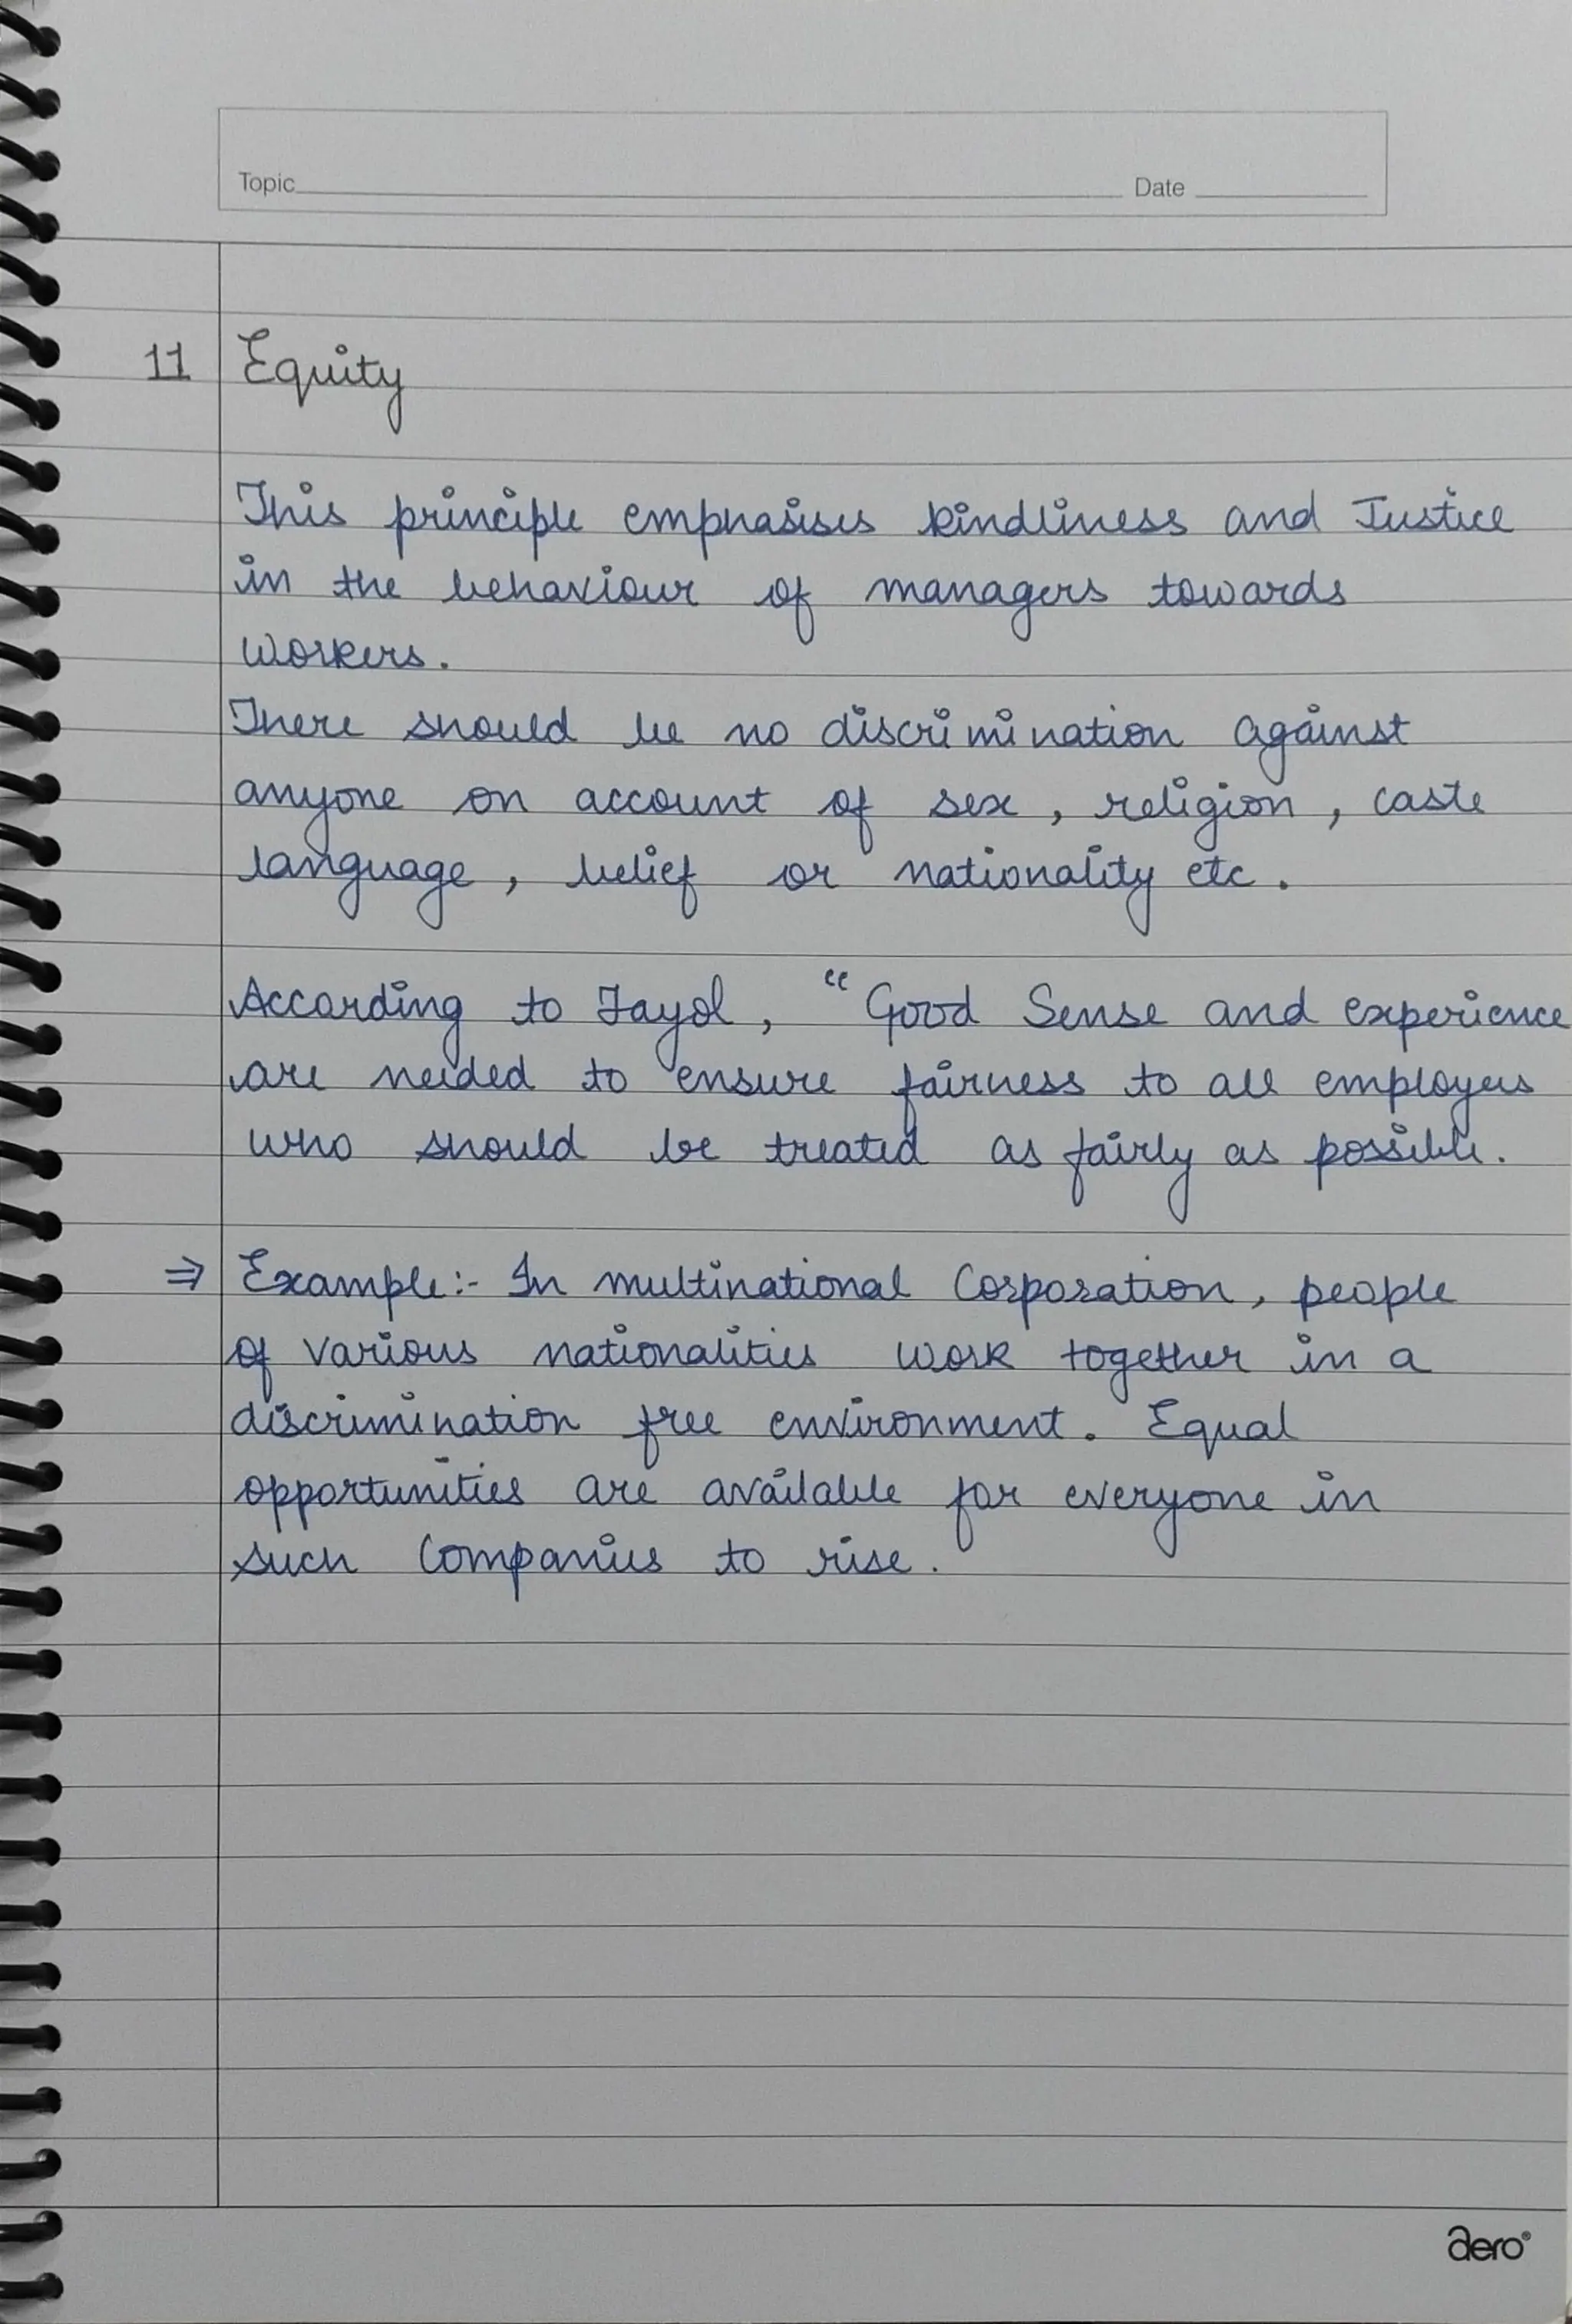 Topic Date
11 Equity
This principle emphasises kindliness and Justice
in the behaviour of managers towards
workers.
There should be no discrimination against
anyone on account of sex, religion, caste
language, belief or nationality etc.
According to Fayol, "Good Sense and experience
are needed to ensure fairness to all employees
who should be treated as fairly as possible.
⇒ Example:- In multinational Corporation, people
of various nationalities work together in a
discrimination free environment. Equal
opportunities are available for everyone in
such Companies to rise.
aero®